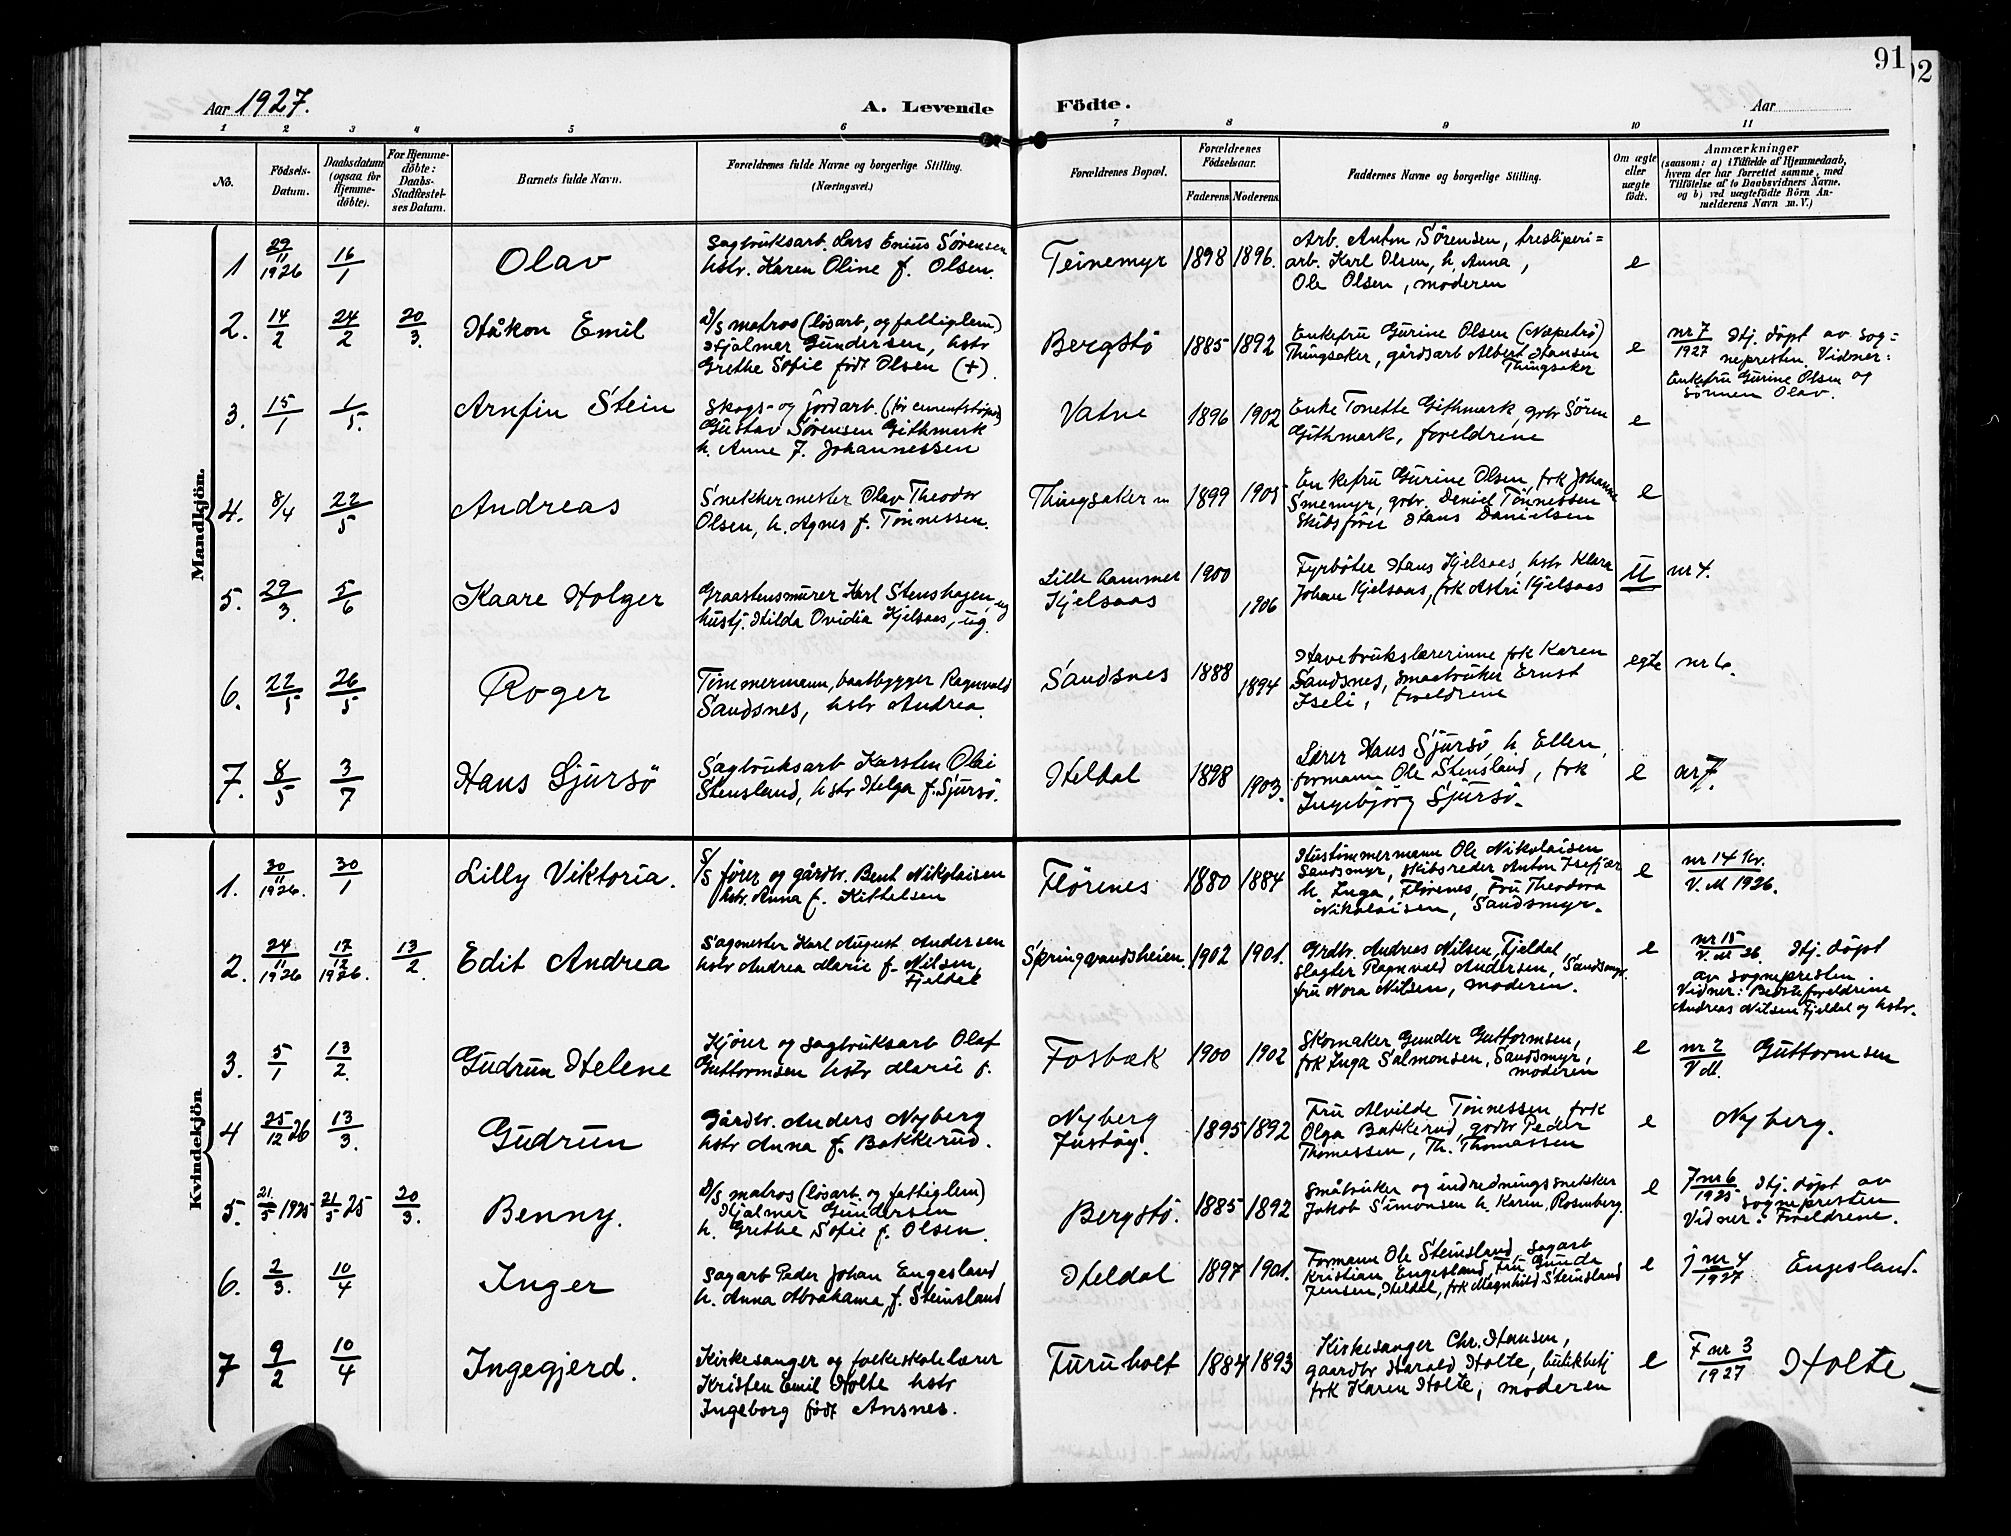 91
92
Aar 1927.
A. Levende Födte.
Aar
1 2 3 4 5 6 7 8 9 10 11
No.
Födsels-
Datum.
Daabsdatum
(ogsaa for
Hjemme-
döbte).
For Hjemme-
döbte:
Daabs-
Stadfæstel-
ses Datum.
Barnets fulde Navn.
Forældrenes fulde Navne og borgerlige Stilling.
(Næringsvei.)
Forældrenes Bopæl.
Forældrenes
Födselsaar.
Faderens. Moderens.
Faddernes Navne og borgerlige Stilling.
Om ægte
eller
uægte
födt.
Anmærkninger
(saasom: a) i Tilfælde af Hjemmedaab,
hvem der har forrettet samme, med
Tilföielse af to Daabsvidners Navne,
og b) ved uægtefödte Börn An-
melderens Navn m. V.)
Mandkjön.
1 29/11 1926 16/1 Olav
Sagbruksarb. Lars Enius Sørensen
hstr. Karen Oline f. Olsen.
Teinemyr 1898 1896.
Arb. Anton Sørensen, tresliperi=
arb. Karl Olsen, h. Anna,
Ole Olsen, moderen
e
2. 14/2 24/2 20/3. Håkon Emil
D/S matros (løsarb. og fattiglem)
Hjalmer Gundersen, hstr
Grethe Sofie født Olsen (+)
Bergstø 1885 1892
Enkefru Gurine Olsen
Thingsaker, gårdsarb Albert Hansen
Thingsaker
e
nr 7/1927 Hj. døpt av sog=
nepresten. Vidner:
Enkefru Gurine Olsen og
sönnen Olav.
3. 15/1 1/5. Arnfin Stein
Skogs- og jordarb.
Gustav Sørensen Githmark
h. Anne f. Johannessen
Vatne 1896 1902
Enke Tonette Githmark, grbr Søren
Githmark, foreldrene
e
4. 8/4 22/5 Andreas
Snekkermester Olav Theodor
Olsen, h. Agnes f. Tönnessen.
Thingsaker 1899 1905
Enkefru Gurine Olsen, frk Johanne
Smemyr, grbr. Deniel Tönnessen
Skibsfører Hans Danielsen
e
5. 29/3. 5/6 Kaare Holger
Graastensmurer Karl Stenshagen, ug
hustj. Hilda Ovidia Kjelsaas, ug.
Lillehammer
Kjelsaas
1900 1906
Fyrböter Hans Kjelsaas, hstr Klara
Johan Kjelsaas, frk Astri Kjelsaas
U
nr 4.
6. 22/5 26/5 Roger
Tömmermann, baatbygger Ragnvald
Sandsnes, hstr Andrea.
Sandsnes 1888 1894
Havebrukslærerinne frk Karen
Sandsnes, smaabruker Ernst
Iseli, foreldrene
egte
nr 6.
7. 8/5 3/7 Hans Sjursö
Sagbruksarb Karsten Olai
Stensland, hstr Helga f. Sjursö.
Heldal 1898 1903.
Lærer Hans Sjursö, h. Ellen,
formann Ole Stensland, frk
Ingebjörg Sjursö.
e
nr 7.
Kvindekjön
1. 30/11 1926. 30/1 Lilly Viktoria.
S/S fører og gårdbr. Bent Nikolaisen
hstr. Anna f. Kittelsen
Flörenes 1880 1884
Hustömmermann Ole Nikolaisen
Sandsmyr, skibsreder Anton Isefjær
h. Inga, Flörenes, Fru Theodora
Nikolaisen, Sandsmyr.
e
nr 14 Kr.
V. M 1926.
2. 24/11 1926 17/12 1926. 13/2. Edit Andrea
Sagmester Karl August Andersen
hstr Andrea Marie f. Nilsen
Fjeldal
Springvandsheien. 1902 1901.
Grdbr. Andreas Nilsen, Fjeldal,
slagter Ragnvald Andersen, Sandsmyr.
fru Nora Nilsen, moderen.
e
nr 15
V. M 26. Hj. döpt
av sognepresten.
Vidner: Bedsteforeldrene
Andreas Nilsen Fjeldal og hstr.
3. 5/1 13/2. Gudrun Helene
Kjører og sagbruksarb Olaf
Guttormsen hstr Marie f.
Fosbæk 1900 1902
Skomaker Gunder Guttormsen,
frk Inga Salmonsen, Sandsmyr,
moderen
e
nr 2
V M. Guttormsen
4 25/12 26 13/3. Gudrun
Gårdbr. Anders Nyberg
hstr Anna f. Bakkerud.
Nyberg
Justöy.
1895 1892
Fru Alvilde Tönnessen, frk
Olga Bakkerud, grdbr Peder
Thomassen, Th. Thomassen
e
Nyberg.
5. 21/5 1925 21/5 25 20/3. Benny.
D/S matros (løsarb. og fattiglem)
Hjalmar Gundersen
h. Grethe Sofie f. Olsen.
Bergstö. 1885 1892
Småbruker og indredningssnekker
Jakob Simonsen h. Karen, Rosenberg.
e
7 nr 6
1925 Hj. döpt av
sognepresten
Vidner: Foreldrene.
6. 2/3. 10/4 Inger
Sagarb Peder Johan Engesland
h. Anna Abrahama f. Steinsland
Heldal 1897 1901.
Formann Ole Steinsland, sagarb
Kristian Engesland, Fru Gunda
Jensen, Heldal, frk Magnhild Steinsland
e
j nr 4
1927 Engesland.
7 9/2 10/4 Ingegjerd.
Kirkesanger og folkeskolelærer
Kristen Emil Holte hstr
Ingeborg født Ansnes.
Furuholt 1884 1893
Kirkesanger Chr. Hansen,
gaardbr Harald Holte, butikbetj
frk Karen Holte, moderen
e
F nr 3
1927 Holte